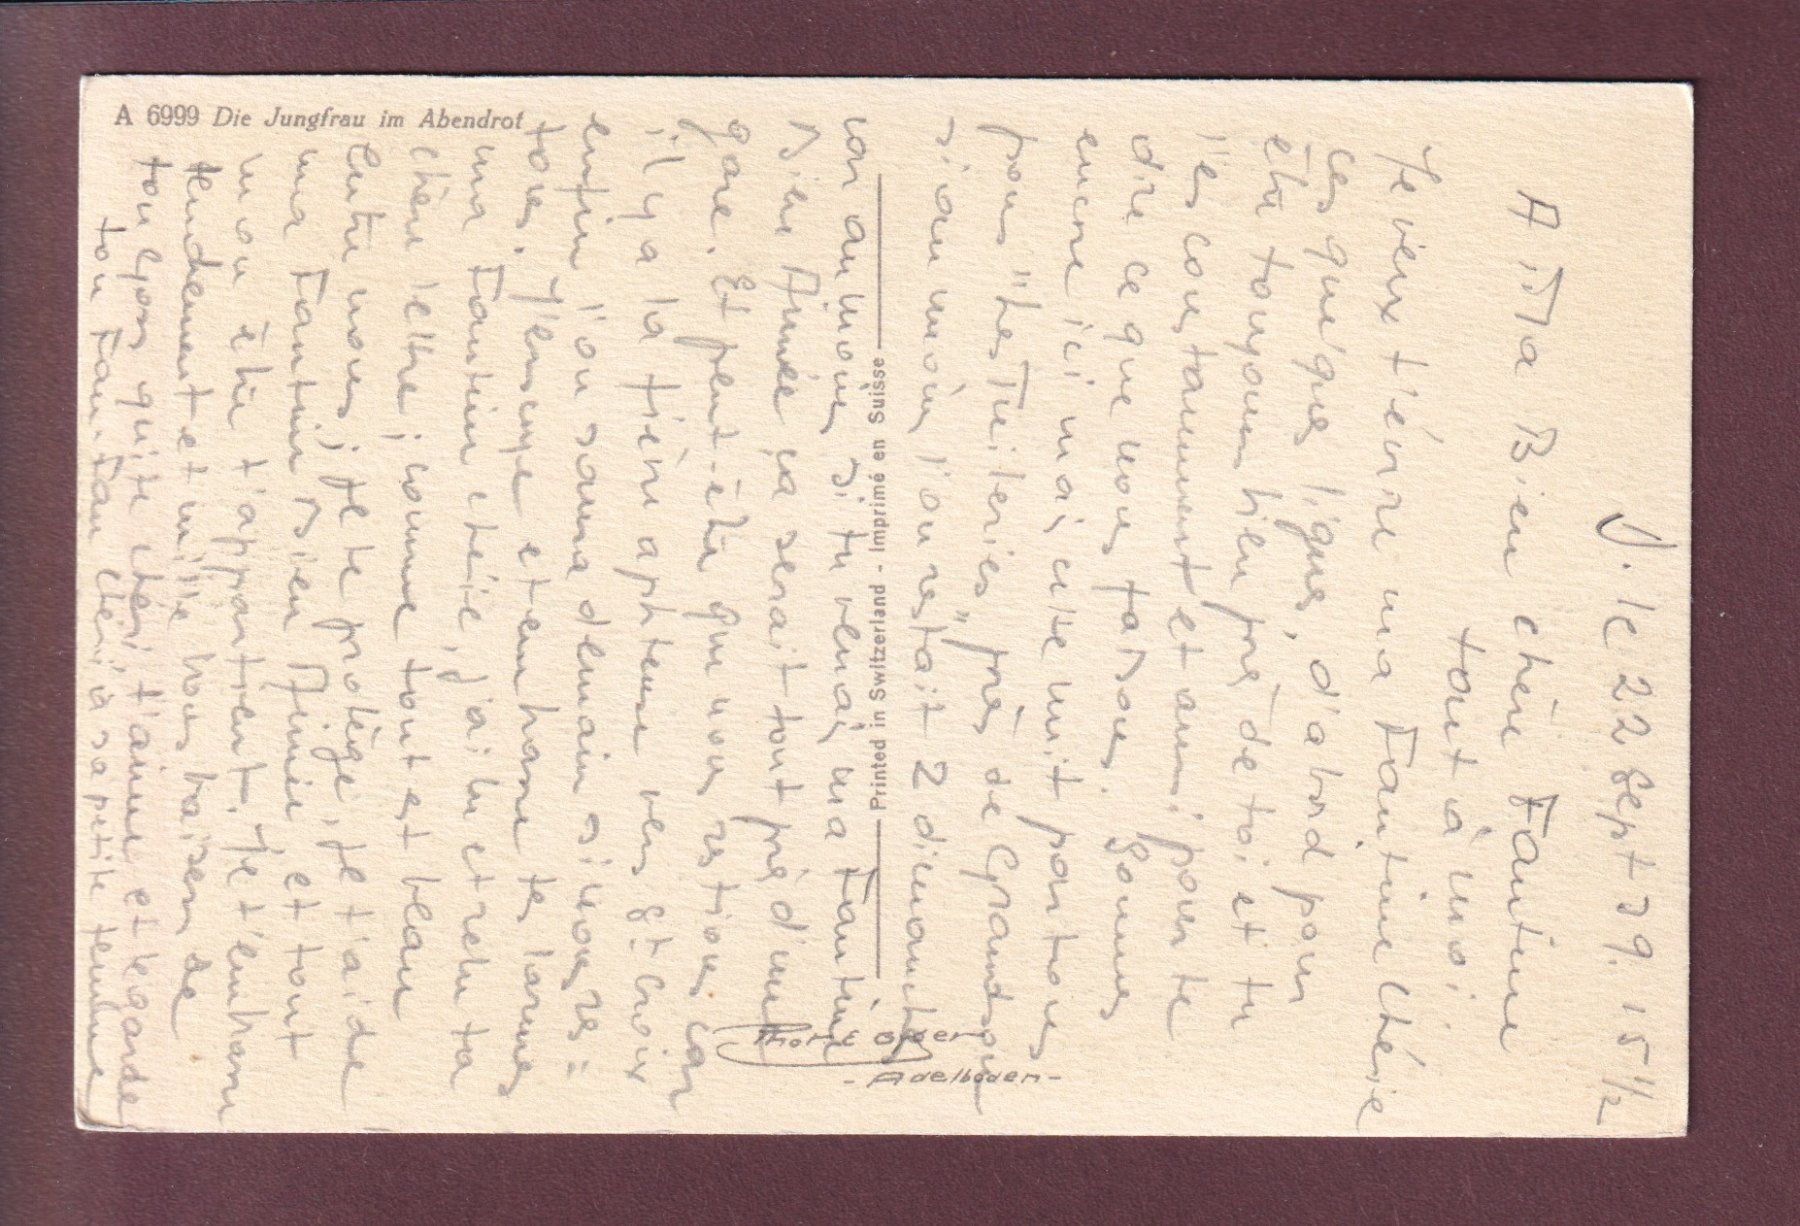 A 6999 Die Jungfrau im Abendrot
Printed in Switzerland - Imprimé en Suisse
- Adelboden -
V. le 22 Sept 39. 15 1/2
A Ma Bien chère Fantine
tout à moi;
Je veux t'écrire ma Fantine chérie
ces quelques lignes, d'abord pour
être toujours bien près de toi et tu
l'es constamment et aussi pour te
dire ce que nous faisons. Sommes
encore ici mais cette nuit partons
pour "Les Tuileries" près de Grandson
si au moins l'on restait 2 dimanches
car au moins si tu venais ma Fantine
Bien Aimée ça serait tout près d'une
gare. Et peut-être que nous restions car
il y a la fièvre aphteuse vers St Croix
enfin l'on saura demain si nous res=
tons. J'essuye et embrasse tes larmes
ma Fantine chérie, j'ai lu et relu ta
chère lettre; comme tout est beau
entre nous; je te protège, je t'aide
ma Fantine Bien Aimée, et tout
mon être t'appartient. Je t'embrasse
tendrement et mille bons baisers de
ton gros qui te chérit t'aime et te garde
ton Fan-Fan chéri à sa petite femme